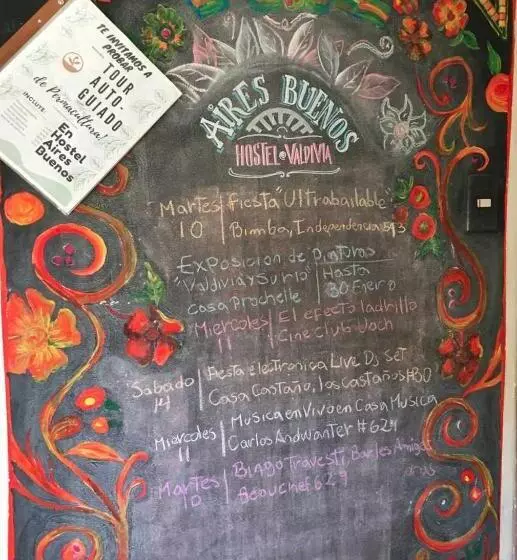 TE INVITAMOS A
PROBAR
TOUR
AUTO-
GUIADO
de Permacultura!
INCLUYE:
En
Hostel
Aires
Buenos
AIRES BUENOS
HOSTEL VALDIVIA
Martes 10 | Fiesta "Ultrabailable"
Bimba, Independencia 593
Exposicion de pinturas
"Valdivia y su rio" | Hasta
Casa Prochelle | 30 Enero
Miercoles 11 | El efecto ladrillo
Cine Club Uach
Sabado 14 | Fiesta electronica Live Dj Set
Casa Castaño, los castaños #30
Miercoles 11 | Musica en Vivo en Casa Musica
Carlos Andwanter #624
Martes 10 | Bingo Travesti, Bar les Amigas
Beauchef 629